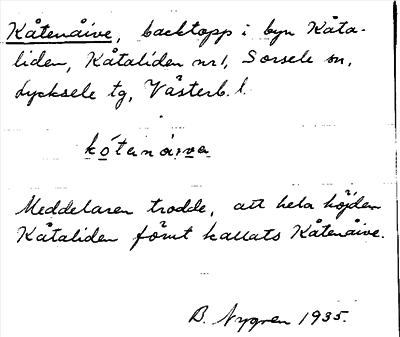 Kåtenåive, backtopp i byn Kåta-
liden, Kåtaliden nr 1, Sorsele sn,
Lycksele tg, Västerb. l.
kótenáiva
Meddelaren trodde, att hela höjden
Kåtaliden förut kallats Kåtenåive.
B. Nygren 1935.